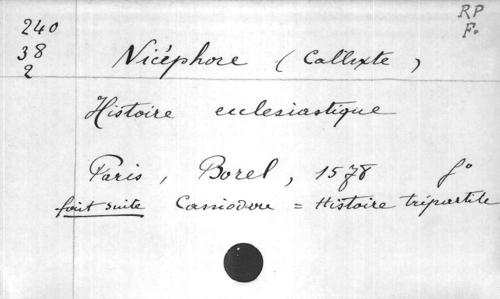 240
38
2
RP
F.
Nicéphore (Callixte)
Histoire ecclesiastique
Paris, Borel, 1578 f°
fait suite Cassiodore = Histoire tripartite